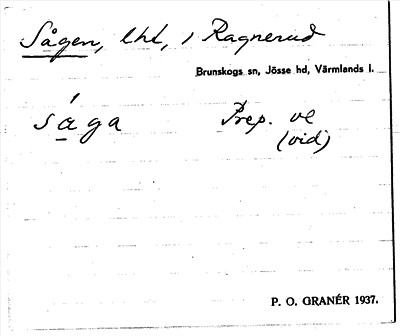 Sågen, lht, i Ragnerud
Brunskogs sn, Jösse hd, Värmlands l.
såga Prep. ve
(vid)
P. O. GRANÉR 1937.